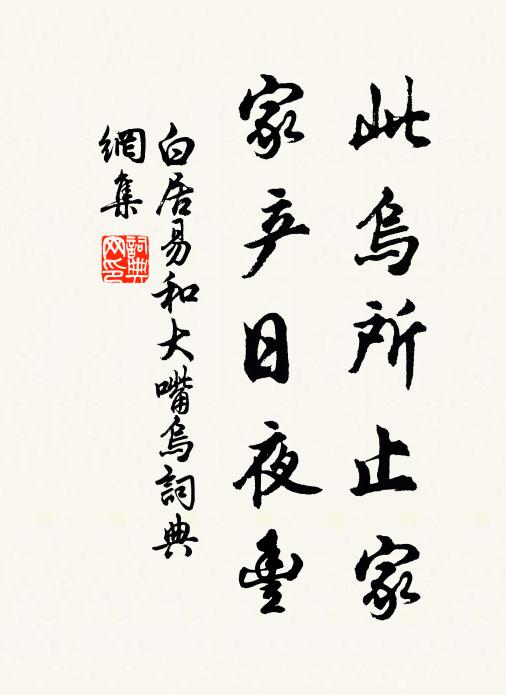 此烏所止家
家产日夜豐
白居易和大嘴烏詞典
網集
詞典
网印